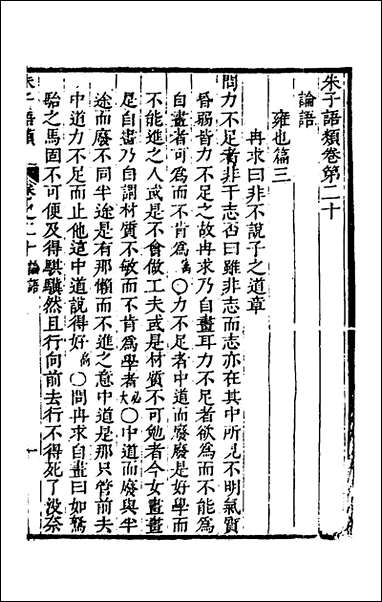 朱子語類卷第三十
論語
雍也篇三
冉求曰非不說子之道章
問力不足者非干志否曰雖非志而志亦在其中所見不明氣質
昏弱皆力不足之故冉求乃自畫耳力不足者欲為而不能為
自畫者可為而不肯為㽦〇力不足者中道而廢廢是好學而
不能進之人或是不會做工夫或是材質不可勉者今女畫畫
是自畫乃自謂材質不敏而不肯為學者必大〇中道而廢與半
途而廢不同半途是有那懶而不進之意中道是那只管前去
中道力不足而止他這中道說得好㽦〇問冉求自畫曰如駑
駘之馬固不可便及得騏驥然且行向前去行不得死了沒奈
朱子語類
論語
一